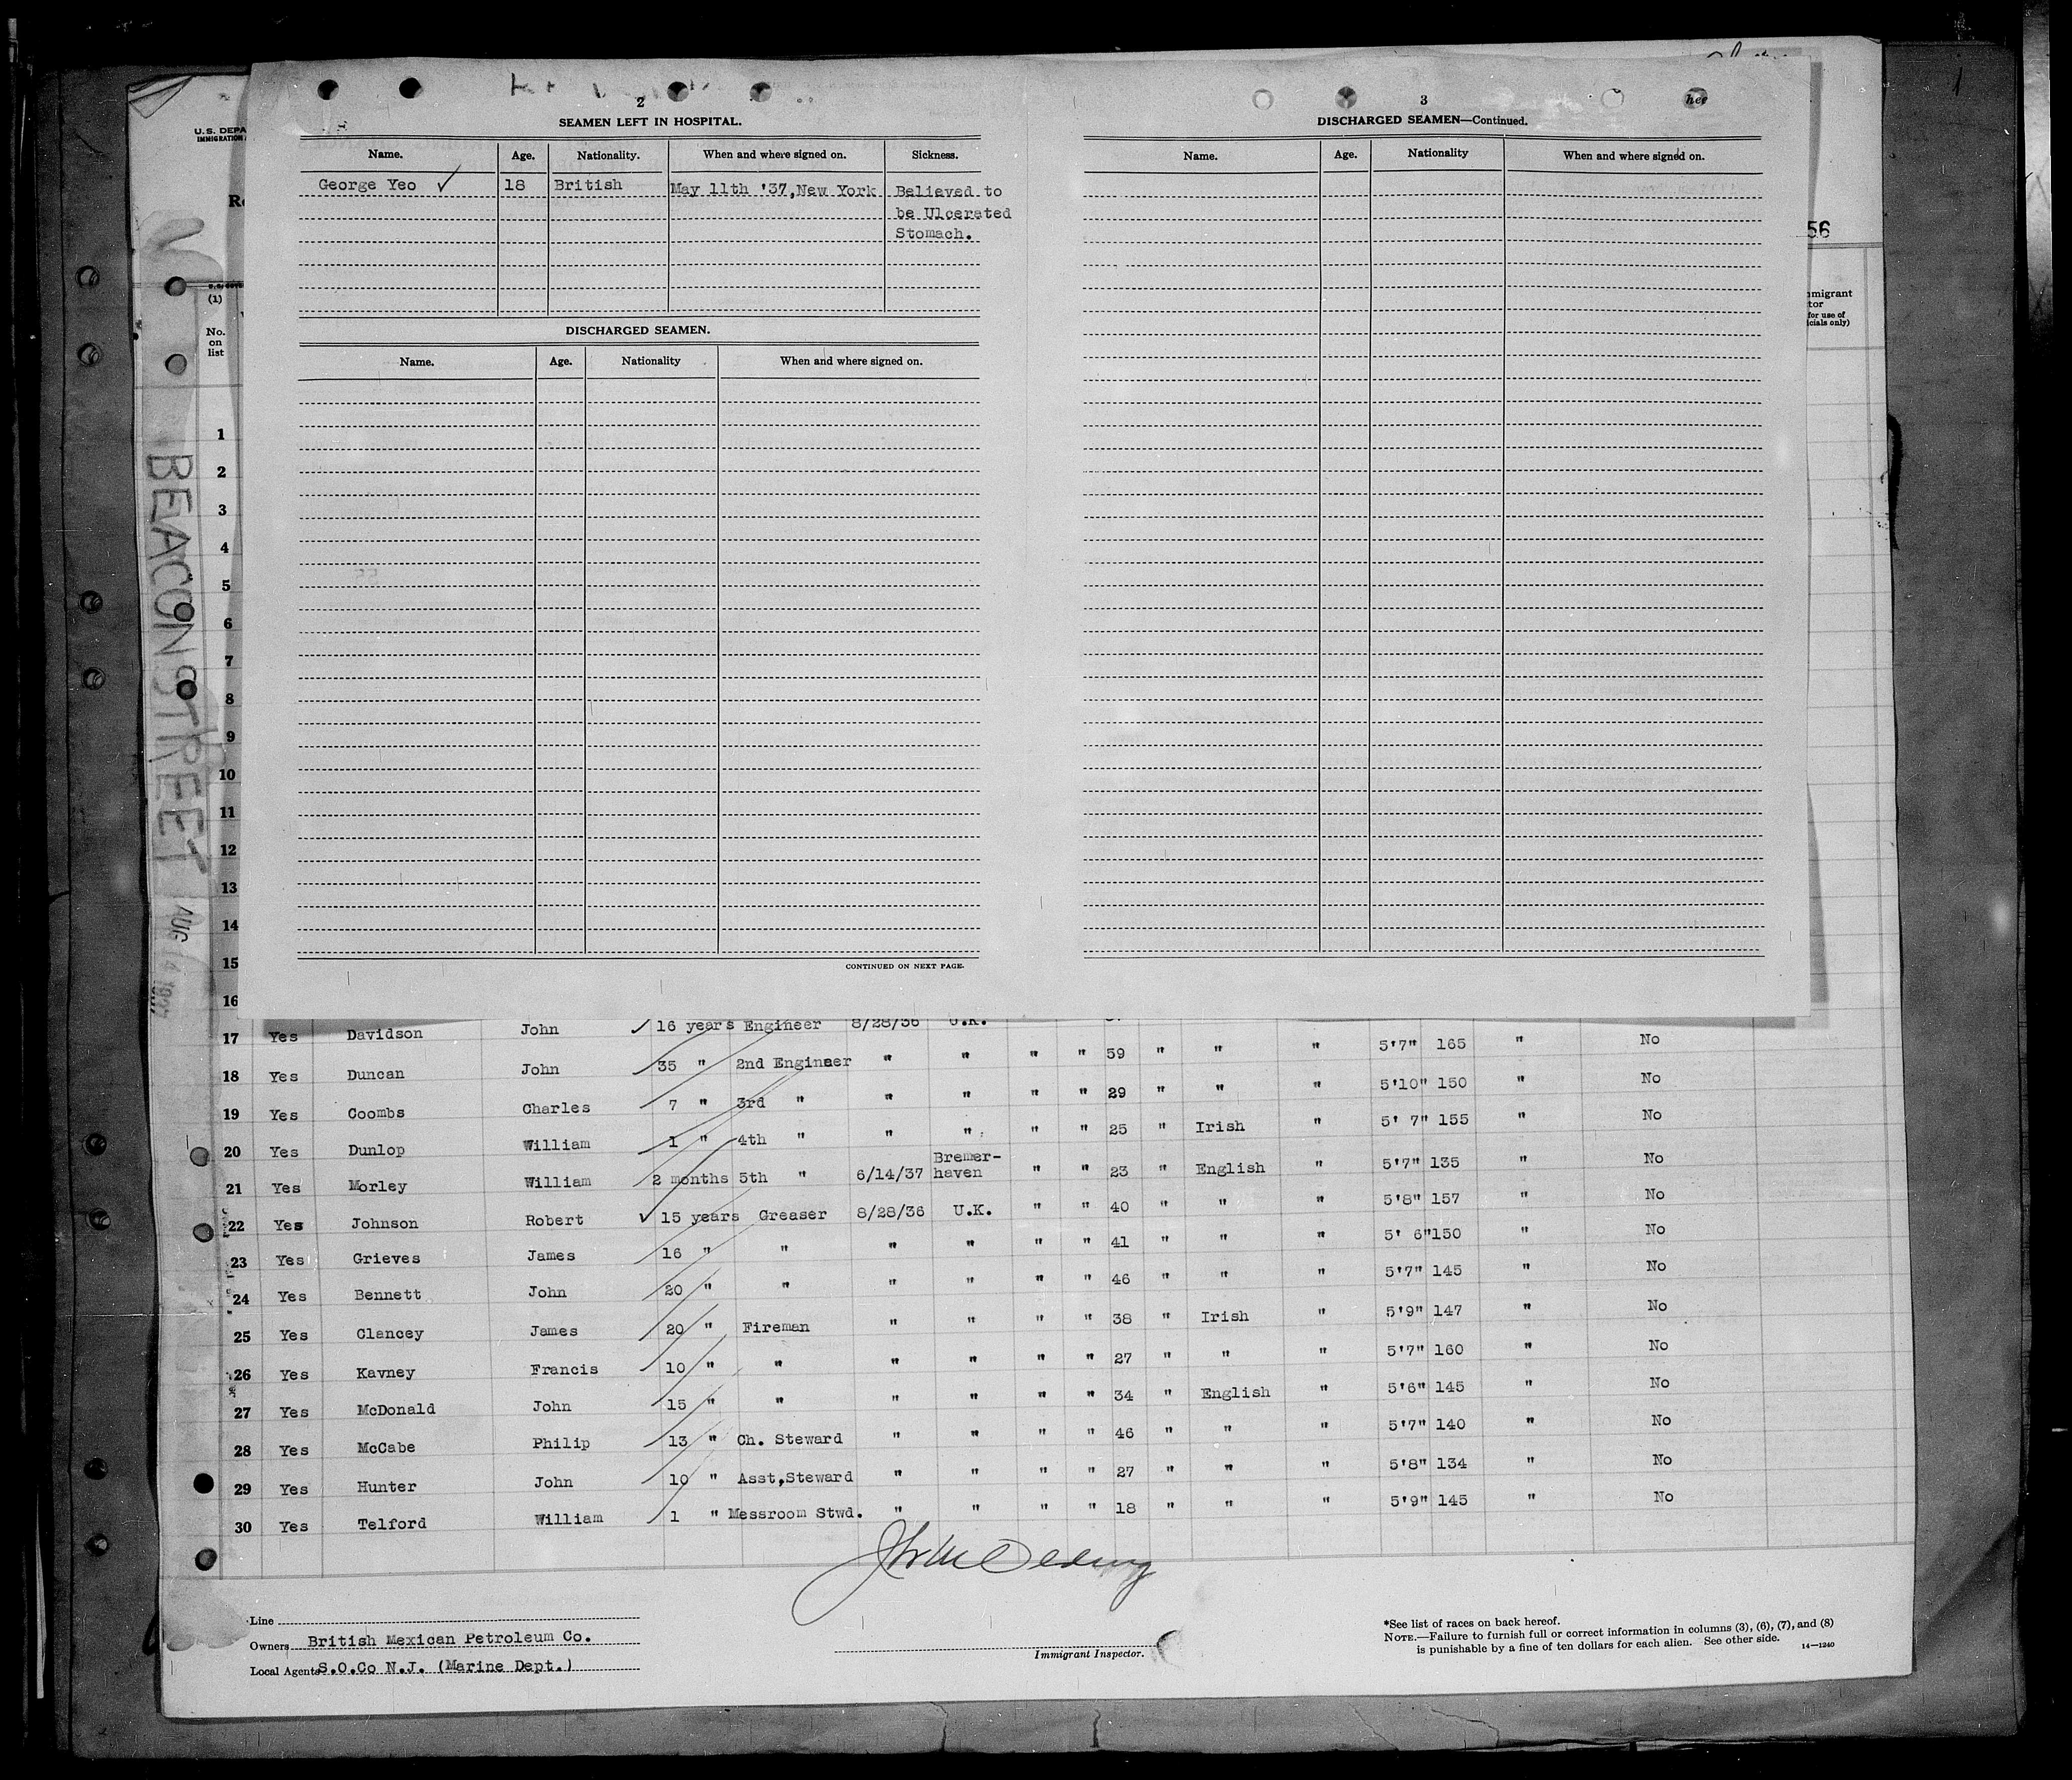 2
SEAMEN LEFT IN HOSPITAL.
Name. Age. Nationality. When and where signed on. Sickness.
George Yeo ✓ 18 British May 11th '37, New York Believed to
be Ulcerated
Stomach.
DISCHARGED SEAMEN.
Name. Age. Nationality When and where signed on.
CONTINUED ON NEXT PAGE.
3
hee
DISCHARGED SEAMEN—Continued.
Name. Age. Nationality When and where signed on.
U.S. DEPA
IMMIGRATION
Re
56
(1)
No.
on
list
mmigrant
tor
for use of
icials only)
BEACON STREET
AUG 1937
1
2
3
4
5
6
7
8
9
10
11
12
13
14
15
16
17 Yes Davidson John ✓ 16 years Engineer 8/28/36 U.K.
18 Yes Duncan John 35 " 2nd Engineer " " " " 59 " " " 5'7" 165 " No
19 Yes Coombs Charles 7 " 3rd " " " " " 29 " " " 5'10" 150 " No
20 Yes Dunlop William 1 " 4th " " " " " 25 " Irish " 5' 7" 155 " No
21 Yes Morley William 2 months 5th " 6/14/37 Bremer-
haven " " 23 " English " 5'7" 135 " No
22 Yes Johnson Robert ✓ 15 years Greaser 8/28/36 U.K. " " 40 " " " 5'8" 157 " No
23 Yes Grieves James 16 " " " " " " 41 " " " 5' 6" 150 " No
24 Yes Bennett John 20 " " " " " " 46 " " " 5'7" 145 " No
25 Yes Clancey James 20 " Fireman " " " " 38 " Irish " 5'9" 147 " No
26 Yes Kavney Francis 10 " " " " " " 27 " " " 5'7" 160 " No
27 Yes McDonald John 15 " " " " " " 34 " English " 5'6" 145 " No
28 Yes McCabe Philip 13 " Ch. Steward " " " " 46 " " " 5'7" 140 " No
29 Yes Hunter John 10 " Asst,Steward " " " " 27 " " " 5'8" 134 " No
30 Yes Telford William 1 " Messroom Stwd. " " " " 18 " " " 5'9" 145 " No
Line
Owners British Mexican Petroleum Co.
Local Agents S.O.Co N.J. (Marine Dept.)
Immigrant Inspector.
*See list of races on back hereof.
NOTE.—Failure to furnish full or correct information in columns (3), (6), (7), and (8)
is punishable by a fine of ten dollars for each alien. See other side. 14—1240